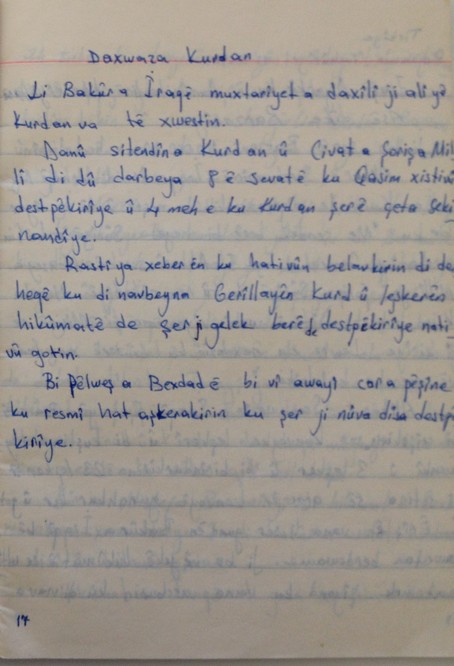 Daxwaza Kurdan
Li Bakûra Îraqê muxtariyeta daxilî ji aliyê
Kurdan va tê xwestin.
Danû sitendina Kurdan û Civata Şorişa Mil
lî di dû darbeya 8 ê sevatê ku Qasim xistivû
destpêkirîye û 4 meh e ku Kurdan şerê çeta seki
nandîye.
Rastiya xeberên ku hativûn belavkirin di de
heqê ku di navbeyna Gerîllayên Kurd û leşkerên
hikûmatê de şer ji gelek berê de destpêkirîye nati
vû gotin.
Bi pêlweşa Bexdadê bi vî awayî cara pêşîne
ku resmî hat aşkerakirin ku şer ji nûva dîsa destpê
kirîye.
17